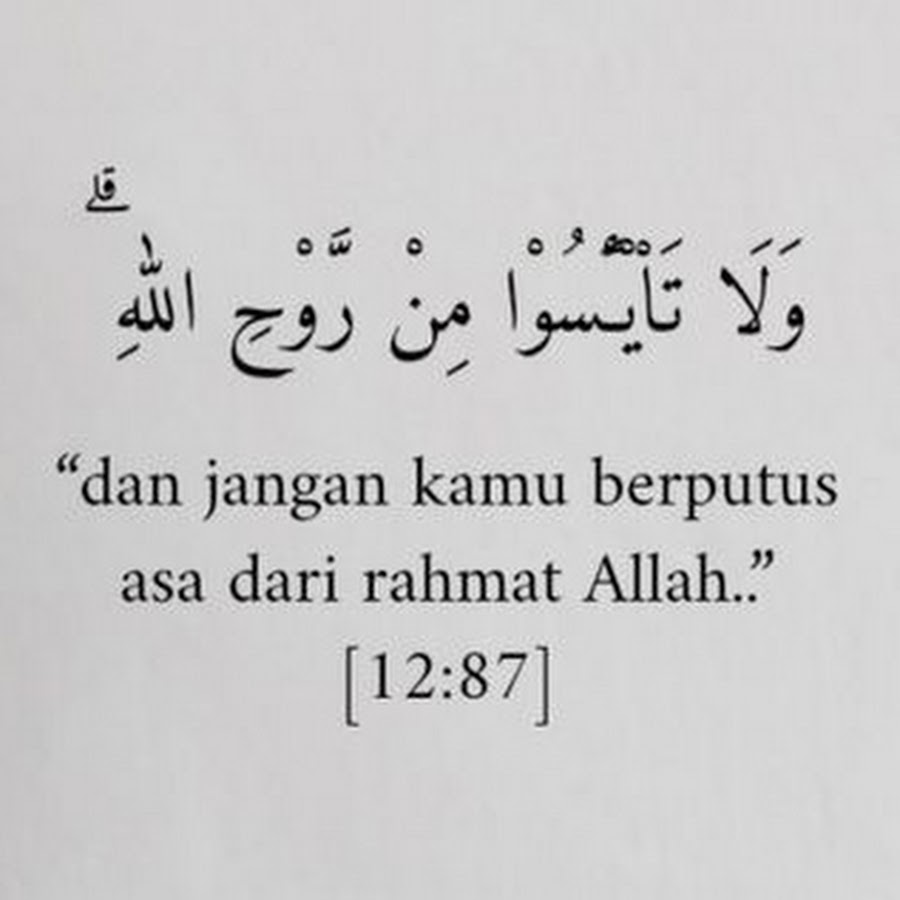 وَلَا تَا۟يْـَٔسُوْا مِنْ رَّوْحِ اللّٰهِ ۗ
“dan jangan kamu berputus
asa dari rahmat Allah..”
[12:87]